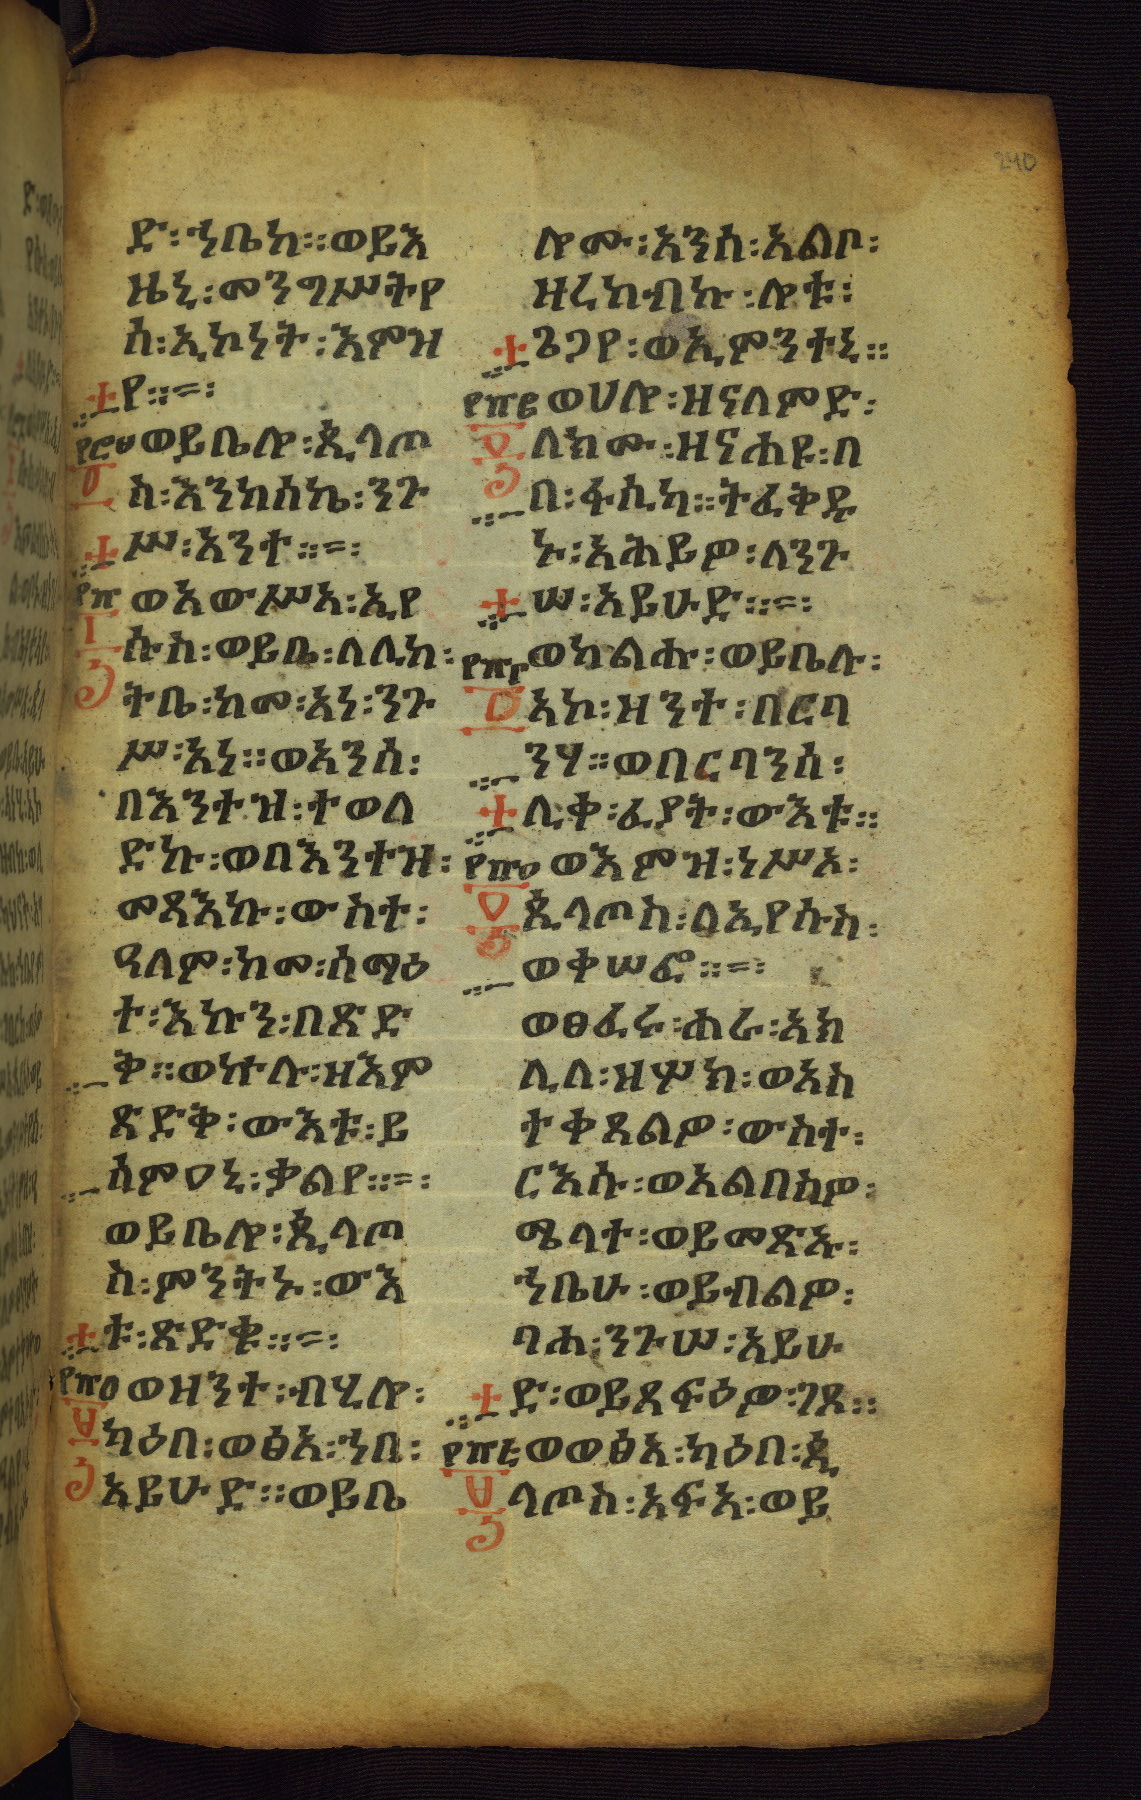 240
ድ፡ኀቤከ፡፡ወይእ
ዜኒ፡መንግሥትየ
ሰ፡ኢኮነት፡እምዝ
የ፡፡=፡
ወይቤሎ፡ጲላጦ
ስ፡እንከሰኬ፡ንጉ
ሥ፡አንተ፡፡=፡
ወአውሥአ፡ኢየ
ሱስ፡ወይቤ፡ለሊከ፡
ትቤ፡ከመ፡አነ፡ንጉ
ሥ፡አነ፡፡ወአንሰ፡
በእንተዝ፡ተወለ
ድኩ፡ወበእንተዝ፡
መጻእኩ፡ውስተ፡
ዓለም፡ከመ፡ስማዕ
ተ፡እኩን፡በጽድ
ቅ፡፡ወኵሉ፡ዘእም
ጽድቅ፡ውእቱ፡ይ
ሰምዐኒ፡ቃልየ፡፡=፡
ወይቤሎ፡ጲላጦ
ስ፡ምንትኑ፡ውእ
ቱ፡ጽድቁ፡፡=፡
ወዘንተ፡ብሂሎ፡
ካዕበ፡ወፅአ፡ኀበ፡
አይሁድ፡፡ወይቤ
ሎሙ፡አንሰ፡አልቦ፡
ዘረከብኩ፡ሎቱ፡
ጌጋየ፡ወኢምንተኒ፡፡
ወሀሎ፡ዘናለምድ፡
ለክሙ፡ዘናሐዩ፡በ
በ፡ፋሲካ፡፡ትፈቅዱ
ኑ፡አሕይዎ፡ለንጉ
ሠ፡አይሁድ፡፡=፡
ወከልሑ፡ወይቤሉ፡
አኮ፡ዘንተ፡በርባ
ንሃ፡፡ወበርባንሰ፡
ሊቀ፡ፈያት፡ውእቱ፡፡
ወእምዝ፡ነሥአ፡
ጲላጦስ፡ለኢየሱስ፡
ወቀሠፎ፡፡=፡
ወፀፈሩ፡ሐራ፡አክ
ሊለ፡ዘሦክ፡ወአስ
ተቀጸልዎ፡ውስተ፡
ርእሱ፡ወአልበስዎ፡
ሜላተ፡ወይመጽኡ፡
ኀቤሁ፡ወይብልዎ፡
ባሐ፡ንጉሠ፡አይሁ
ድ፡ወይጸፍዕዎ፡ገጸ፡፡
ወወፅአ፡ካዕበ፡ጲ
ላጦስ፡አፍአ፡ወይ